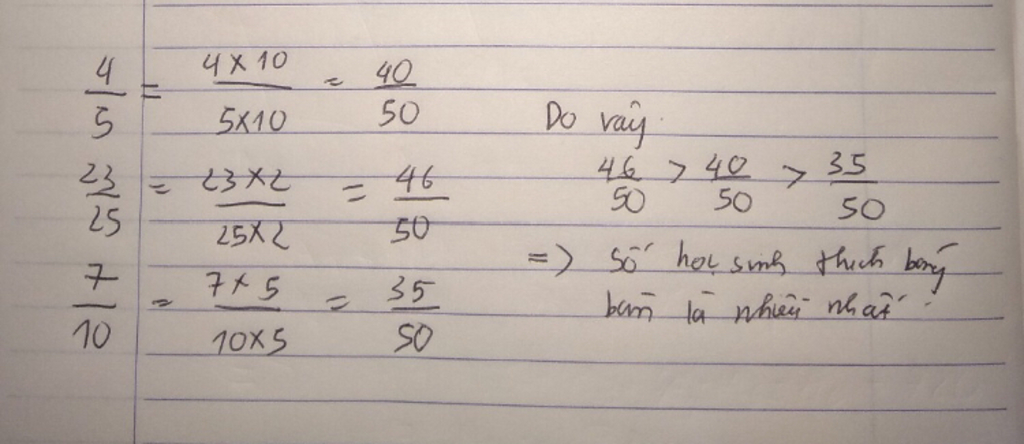 4/5 = 4×10/5×10 = 40/50
23/25 = 23×2/25×2 = 46/50
7/10 = 7×5/10×5 = 35/50
Do vậy
46/50 > 40/50 > 35/50
=> Số học sinh thích bóng
bàn là nhiều nhất.